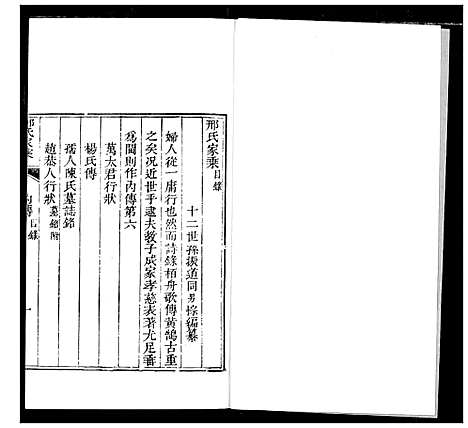 邢氏家乘目錄
十二世孫振道同易 編纂
婦人從一庸行也然而詩錄栢舟歌傳黃鵠古重
之矣況近世乎逮夫教子成家孝慈表著尤足審
爲閫則作內傳第六
萬太君行狀
楊氏傳
孺人陳氏墓誌銘
趙恭人行狀墓銘附
邢氏家乘 內傳目錄 一